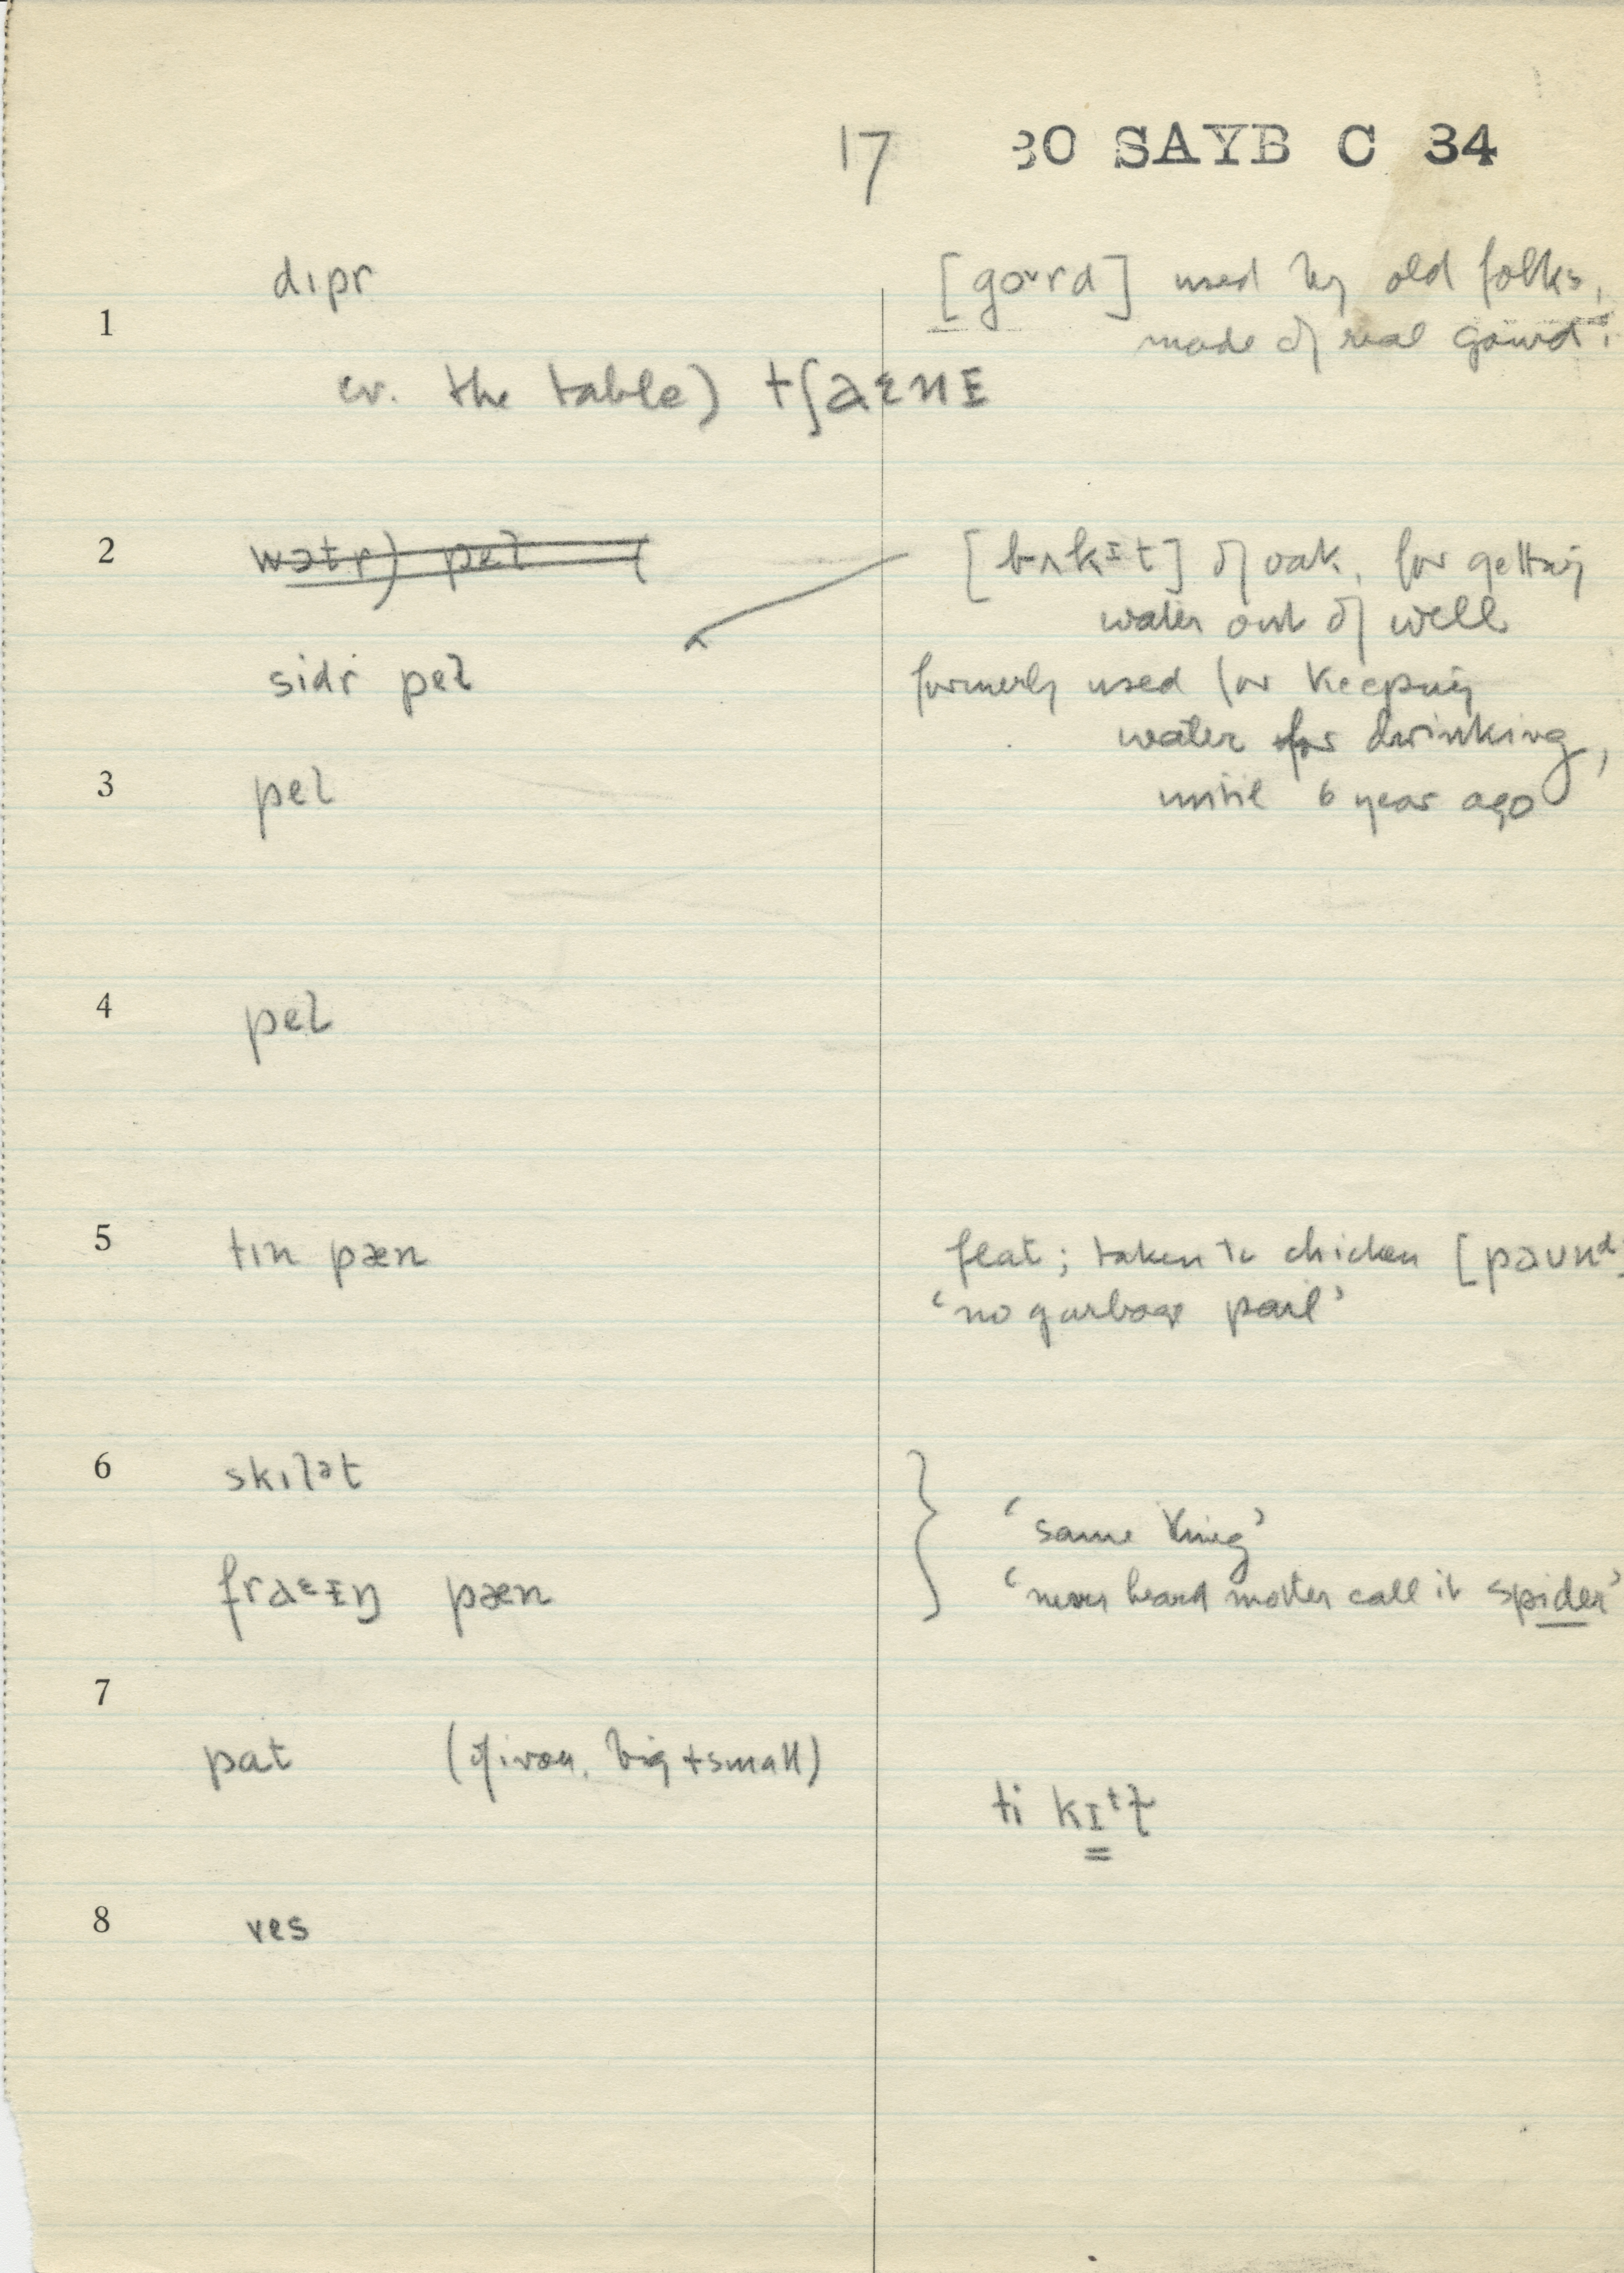 17 30 SAYB C 34
dɪpr [goᵘrd] used by old folks,
1 made of real gourd.
cv. the table) tʃaɛnɪ
2 wɔtr) pel ( [bʌkɪt] of oak, for getting
water out of well
sidr pel formerly used for keeping
water for drinking,
3 pel until 6 year ago
4 pel
5 tɪn pæn flat; taken to chicken [paʊnᵈ]
'no garbage pail'
6 skɪlᵊt
'same thing'
fraᵋɪŋ pæn 'never heard mother call it spider'
7
pat (of iron, big + small)
ti kɪᵗɫ
8 ves